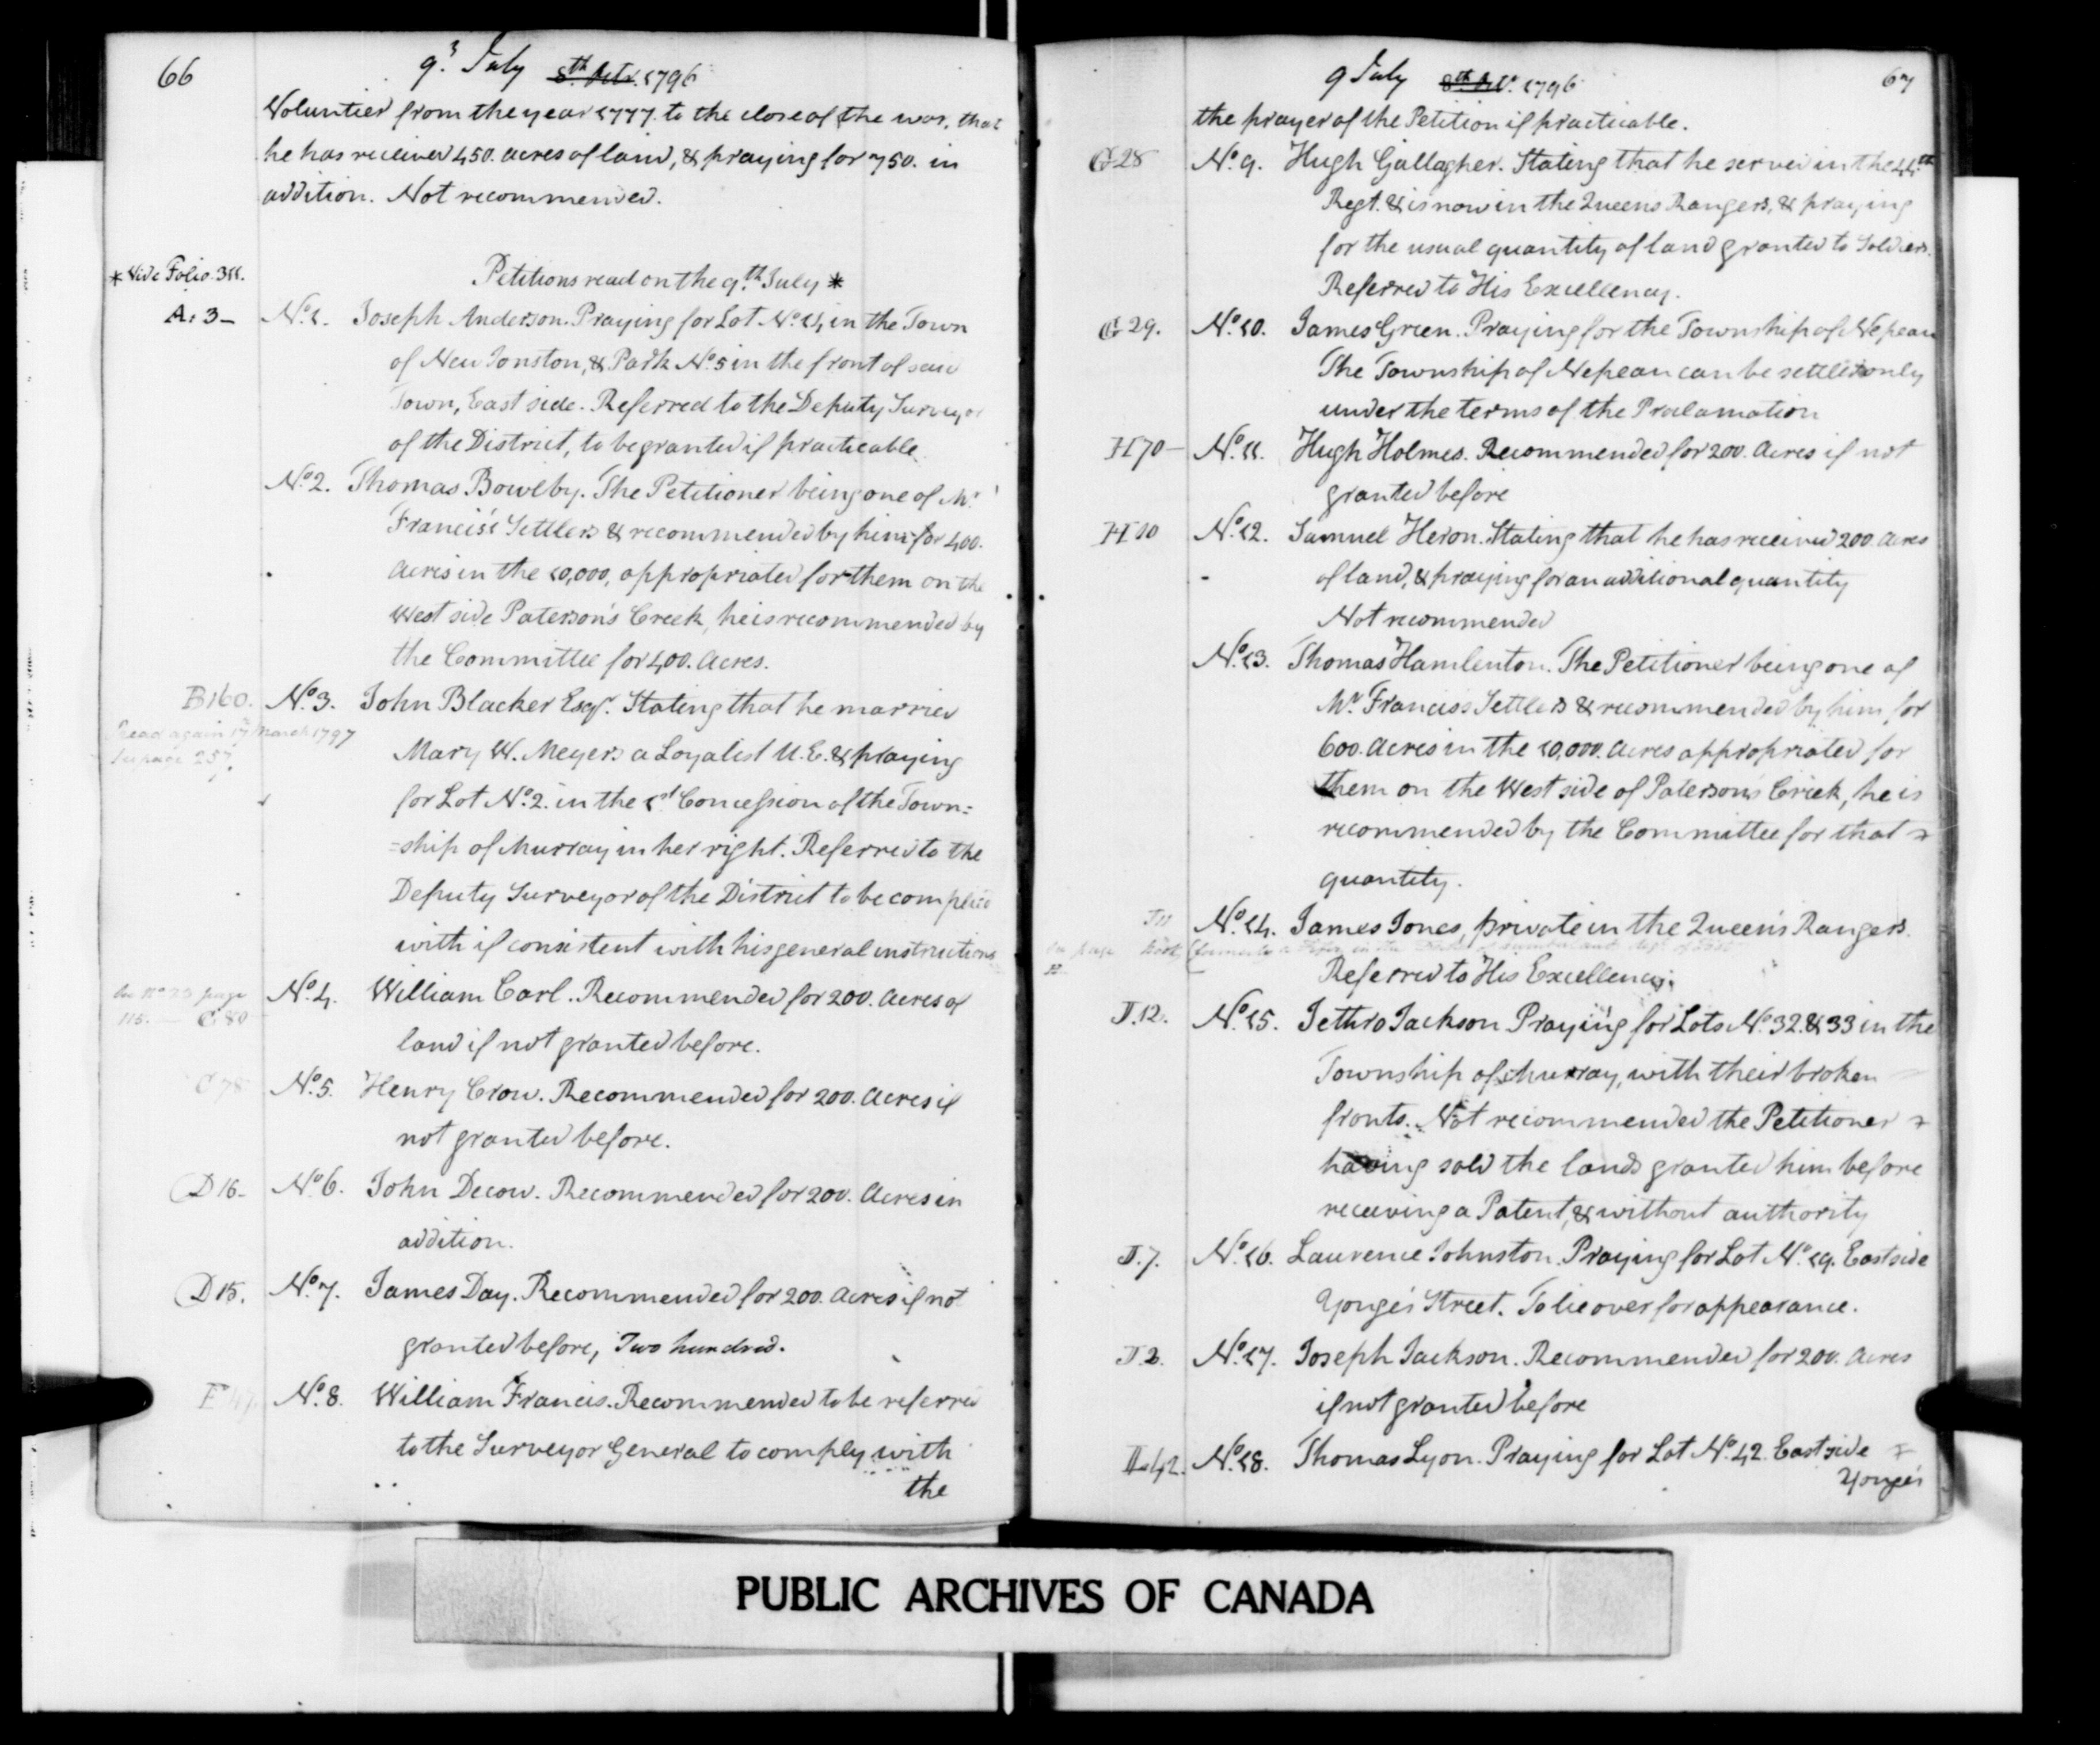 66
9th July 8th Octr. 1796
Voluntier from the year 1777. to the close of the war, that
he has received 450. acres of land, & praying for 750. in
addition. Not recommended.
* Vide Folio 311.
Petitions read on the 9th July *
A. 3 — No. 1. Joseph Anderson. Praying for Lot No. 14, in the Town
of New Jonston, & Park No. 5 in the front of said
Town, East side. Referred to the Deputy Surveyor
of the District, to be granted if practicable.
No. 2. Thomas Bowlby. The Petitioner being one of Mr.
Francis's Settlers & recommended by him for 400.
Acres in the 10,000, appropriated for them on the
West side Paterson's Creek, he is recommended by
the Committee for 400. Acres.
B 160. No. 3. John Blacker Esqr. Stating that he married
Read again 17 March 1797
See page 257.
Mary W. Meyers a Loyalist U.E. & praying
for Lot No. 2. in the 1st Concession of the Town=
=ship of Murray in her right. Referred to the
Deputy Surveyor of the District to be complied
with if consistent with his general instructions
See No 23 page
115. — C 80
No. 4. William Carl. Recommended for 200. Acres of
land if not granted before.
C 78 No. 5. Henry Crow. Recommended for 200. Acres if
not granted before.
D 16. No. 6. John Decow. Recommended for 200. Acres in
addition.
D 15. No. 7. James Day. Recommended for 200. Acres if not
granted before, Two hundred.
F No. 8. William Francis. Recommended to be referred
to the Surveyor General to comply with
the
9 July 8th 1796
67
the prayer of the Petition if practicable.
G 28 No. 9. Hugh Gallagher. Stating that he served in the 44th
Regt. & is now in the Queens Rangers, & praying
for the usual quantity of land granted to Soldiers.
Referred to His Excellency.
G 29. No. 10. James Green. Praying for the Township of Nepean
The Township of Nepean can be settled only
under the terms of the Proclamation
H 70 — No. 11. Hugh Holmes. Recommended for 200. Acres if not
granted before
H 10 No. 12. Samuel Heron. Stating that he has received 200. Acres
of land, & praying for an additional quantity
Not recommended
No. 13. Thomas Hamlenton. The Petitioner being one of
Mr. Francis's Settlers & recommended by him for
600. Acres in the 10,000. Acres appropriated for
them on the West side of Paterson's Creek, he is
recommended by the Committee for that
quantity.
J 11 No. 14. James Jones, private in the Queen's Rangers.
Referred to His Excellency.
J. 12. No. 15. Jethro Jackson Praying for Lots No. 32. & 33 in the
Township of Murray, with their broken
fronts. Not recommended the Petitioner
having sold the lands granted him before
receiving a Patent, & without authority
J. 7. No. 16. Laurence Johnston. Praying for Lot No. 19. East side
Yonge's Street. To lie over for appearance.
J. 2. No. 17. Joseph Jackson. Recommended for 200. Acres
if not granted before
L 42. No. 18. Thomas Lyon. Praying for Lot No. 42. East side
Yonge's
PUBLIC ARCHIVES OF CANADA